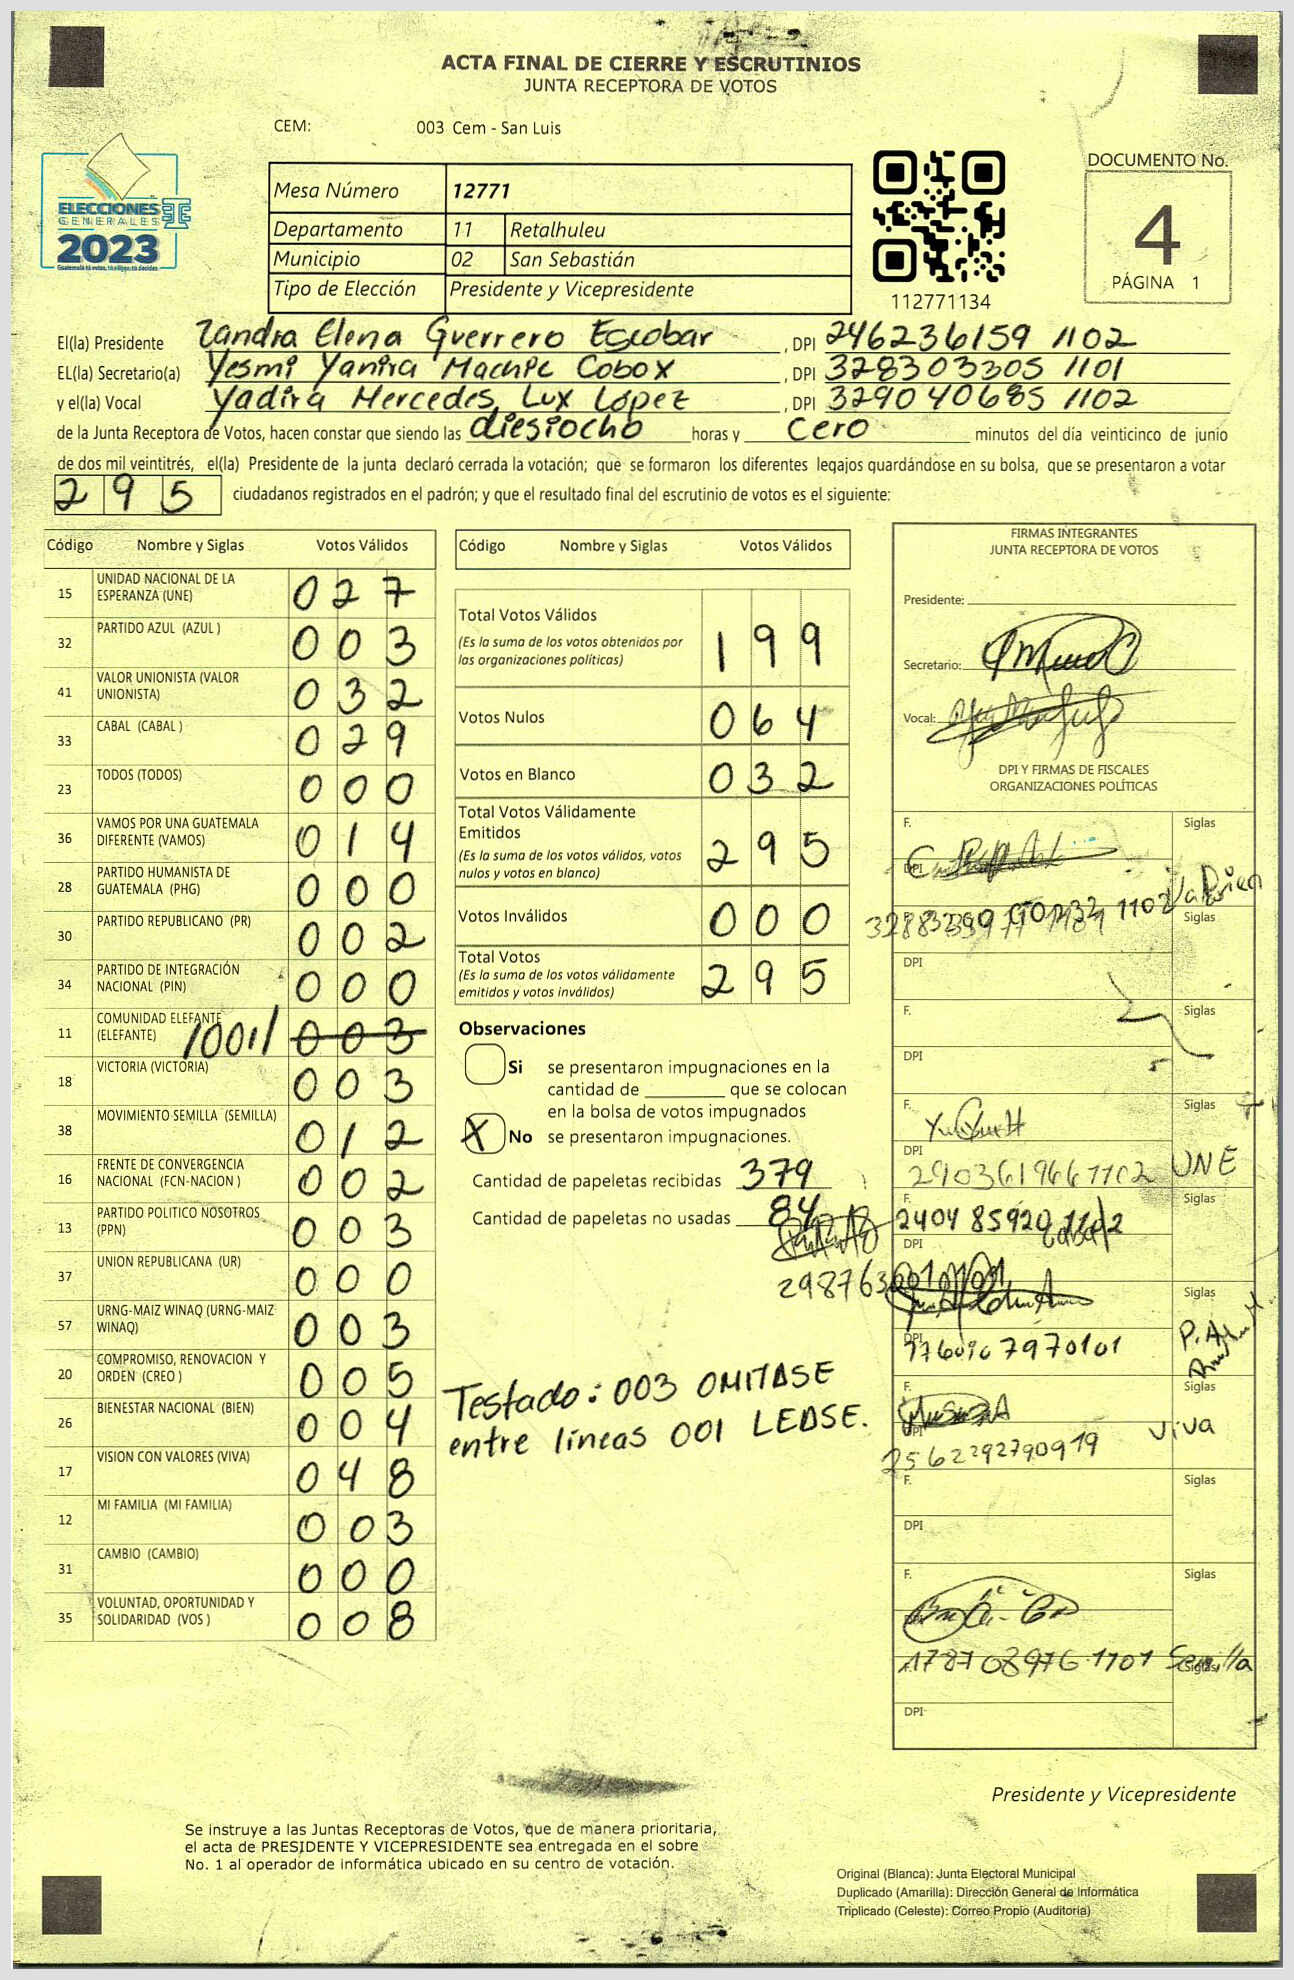 ACTA FINAL DE CIERRE Y ESCRUTINIOS
JUNTA RECEPTORA DE VOTOS
CEM: 003 Cem - San Luis
ELECCIONES
GENERALES
2023
Guatemala tú votas, tú eliges, tú decides
Mesa Número 12771
Departamento 11 Retalhuleu
Municipio 02 San Sebastián
Tipo de Elección Presidente y Vicepresidente
112771134
DOCUMENTO No.
4
PÁGINA 1
El(la) Presidente Zandra Elena Guerrero Escobar, DPI 246236159 1102
EL(la) Secretario(a) Yesmi Yanira Machic Cobox, DPI 328303305 1101
y el(la) Vocal Yadira Mercedes Lux López, DPI 329040685 1102
de la Junta Receptora de Votos, hacen constar que siendo las diesiocho horas y Cero minutos del día veinticinco de junio
de dos mil veintitrés, el(la) Presidente de la junta declaró cerrada la votación; que se formaron los diferentes legajos guardándose en su bolsa, que se presentaron a votar
295 ciudadanos registrados en el padrón; y que el resultado final del escrutinio de votos es el siguiente:
Código Nombre y Siglas Votos Válidos
15 UNIDAD NACIONAL DE LA ESPERANZA (UNE) 027
32 PARTIDO AZUL (AZUL ) 003
41 VALOR UNIONISTA (VALOR UNIONISTA) 032
33 CABAL (CABAL ) 029
23 TODOS (TODOS) 000
36 VAMOS POR UNA GUATEMALA DIFERENTE (VAMOS) 014
28 PARTIDO HUMANISTA DE GUATEMALA (PHG) 000
30 PARTIDO REPUBLICANO (PR) 002
34 PARTIDO DE INTEGRACIÓN NACIONAL (PIN) 000
11 COMUNIDAD ELEFANTE (ELEFANTE) /001/ 003
18 VICTORIA (VICTORIA) 003
38 MOVIMIENTO SEMILLA (SEMILLA) 012
16 FRENTE DE CONVERGENCIA NACIONAL (FCN-NACION ) 002
13 PARTIDO POLITICO NOSOTROS (PPN) 003
37 UNION REPUBLICANA (UR) 000
57 URNG-MAIZ WINAQ (URNG-MAIZ WINAQ) 003
20 COMPROMISO, RENOVACION Y ORDEN (CREO ) 005
26 BIENESTAR NACIONAL (BIEN) 004
17 VISION CON VALORES (VIVA) 048
12 MI FAMILIA (MI FAMILIA) 003
31 CAMBIO (CAMBIO) 000
35 VOLUNTAD, OPORTUNIDAD Y SOLIDARIDAD (VOS ) 008
Código Nombre y Siglas Votos Válidos
Total Votos Válidos 199
(Es la suma de los votos obtenidos por
las organizaciones políticas)
Votos Nulos 064
Votos en Blanco 032
Total Votos Válidamente
Emitidos 295
(Es la suma de los votos válidos, votos
nulos y votos en blanco)
Votos Inválidos 000
Total Votos 295
(Es la suma de los votos válidamente
emitidos y votos inválidos)
Observaciones
Si se presentaron impugnaciones en la
cantidad de ________ que se colocan
en la bolsa de votos impugnados
X No se presentaron impugnaciones.
Cantidad de papeletas recibidas 379
Cantidad de papeletas no usadas 84
Testado: 003 OMITASE
entre líneas 001 LEASE.
FIRMAS INTEGRANTES
JUNTA RECEPTORA DE VOTOS
Presidente:
Secretario:
Vocal:
DPI Y FIRMAS DE FISCALES
ORGANIZACIONES POLÍTICAS
F. Siglas
DPI
Siglas
DPI
F. Siglas
DPI
F. Siglas
DPI
2903619661102 UNE
F. Siglas
2404 85920 1102
DPI
Siglas
DPI
P.A
F. Siglas
DPI
2562292790919 Viva
F. Siglas
DPI
F. Siglas
178708976 1101 Semilla
F. Siglas
DPI
Presidente y Vicepresidente
Se instruye a las Juntas Receptoras de Votos, que de manera prioritaria,
el acta de PRESIDENTE Y VICEPRESIDENTE sea entregada en el sobre
No. 1 al operador de informática ubicado en su centro de votación.
Original (Blanca): Junta Electoral Municipal
Duplicado (Amarilla): Dirección General de Informática
Triplicado (Celeste): Correo Propio (Auditoria)